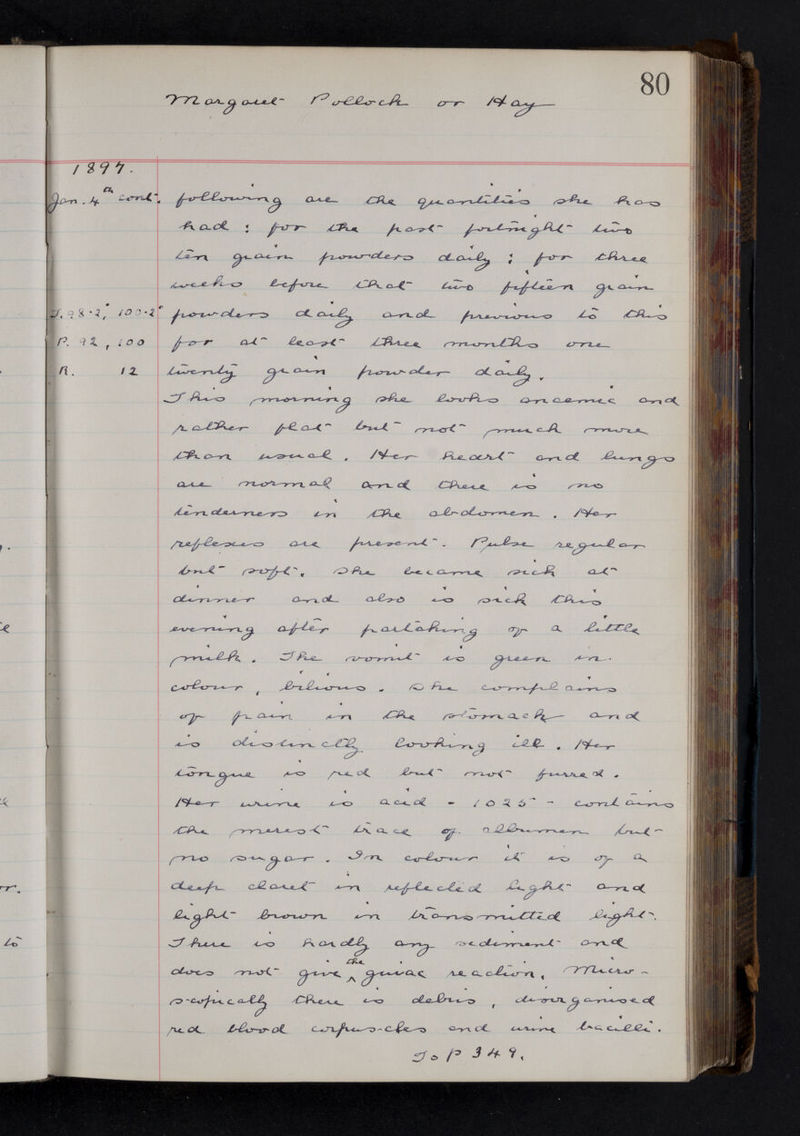 80
Margaret Pollock or Hay
1897.
Jan. 4th cont. following are the quantities she has
had : for the past fortnight two
ten grain powders daily ; for three
weeks before that two fifteen grain
T. 98·2°, 100·2° powders daily and previous to this
P. 92, 100 for at least three months one
R. 12 twenty grain powder daily.
This morning she looks anaemic and
rather flat but not much more
than usual. Her heart and lungs
are normal and there is no
tenderness in the abdomen. Her
reflexes are present. Pulse regular
but soft. She became sick at
dinner and also is sick this
evening after partaking of a little
milk. The vomit is green in
colour, bilious. She complains
of pain in the stomach and
is distinctly looking ill. Her
tongue is red but not furred.
Her urine is acid - 1025 - contains
the merest trace of albumen but
no sugar. In colour it is of a
deep claret in reflected light and
light brown in transmitted light.
There is hardly any sediment and
does not give the guiac reaction. Micro-
scopically there is debris, disorganised
red blood corpuscles and urine bacilli.
To P 349.